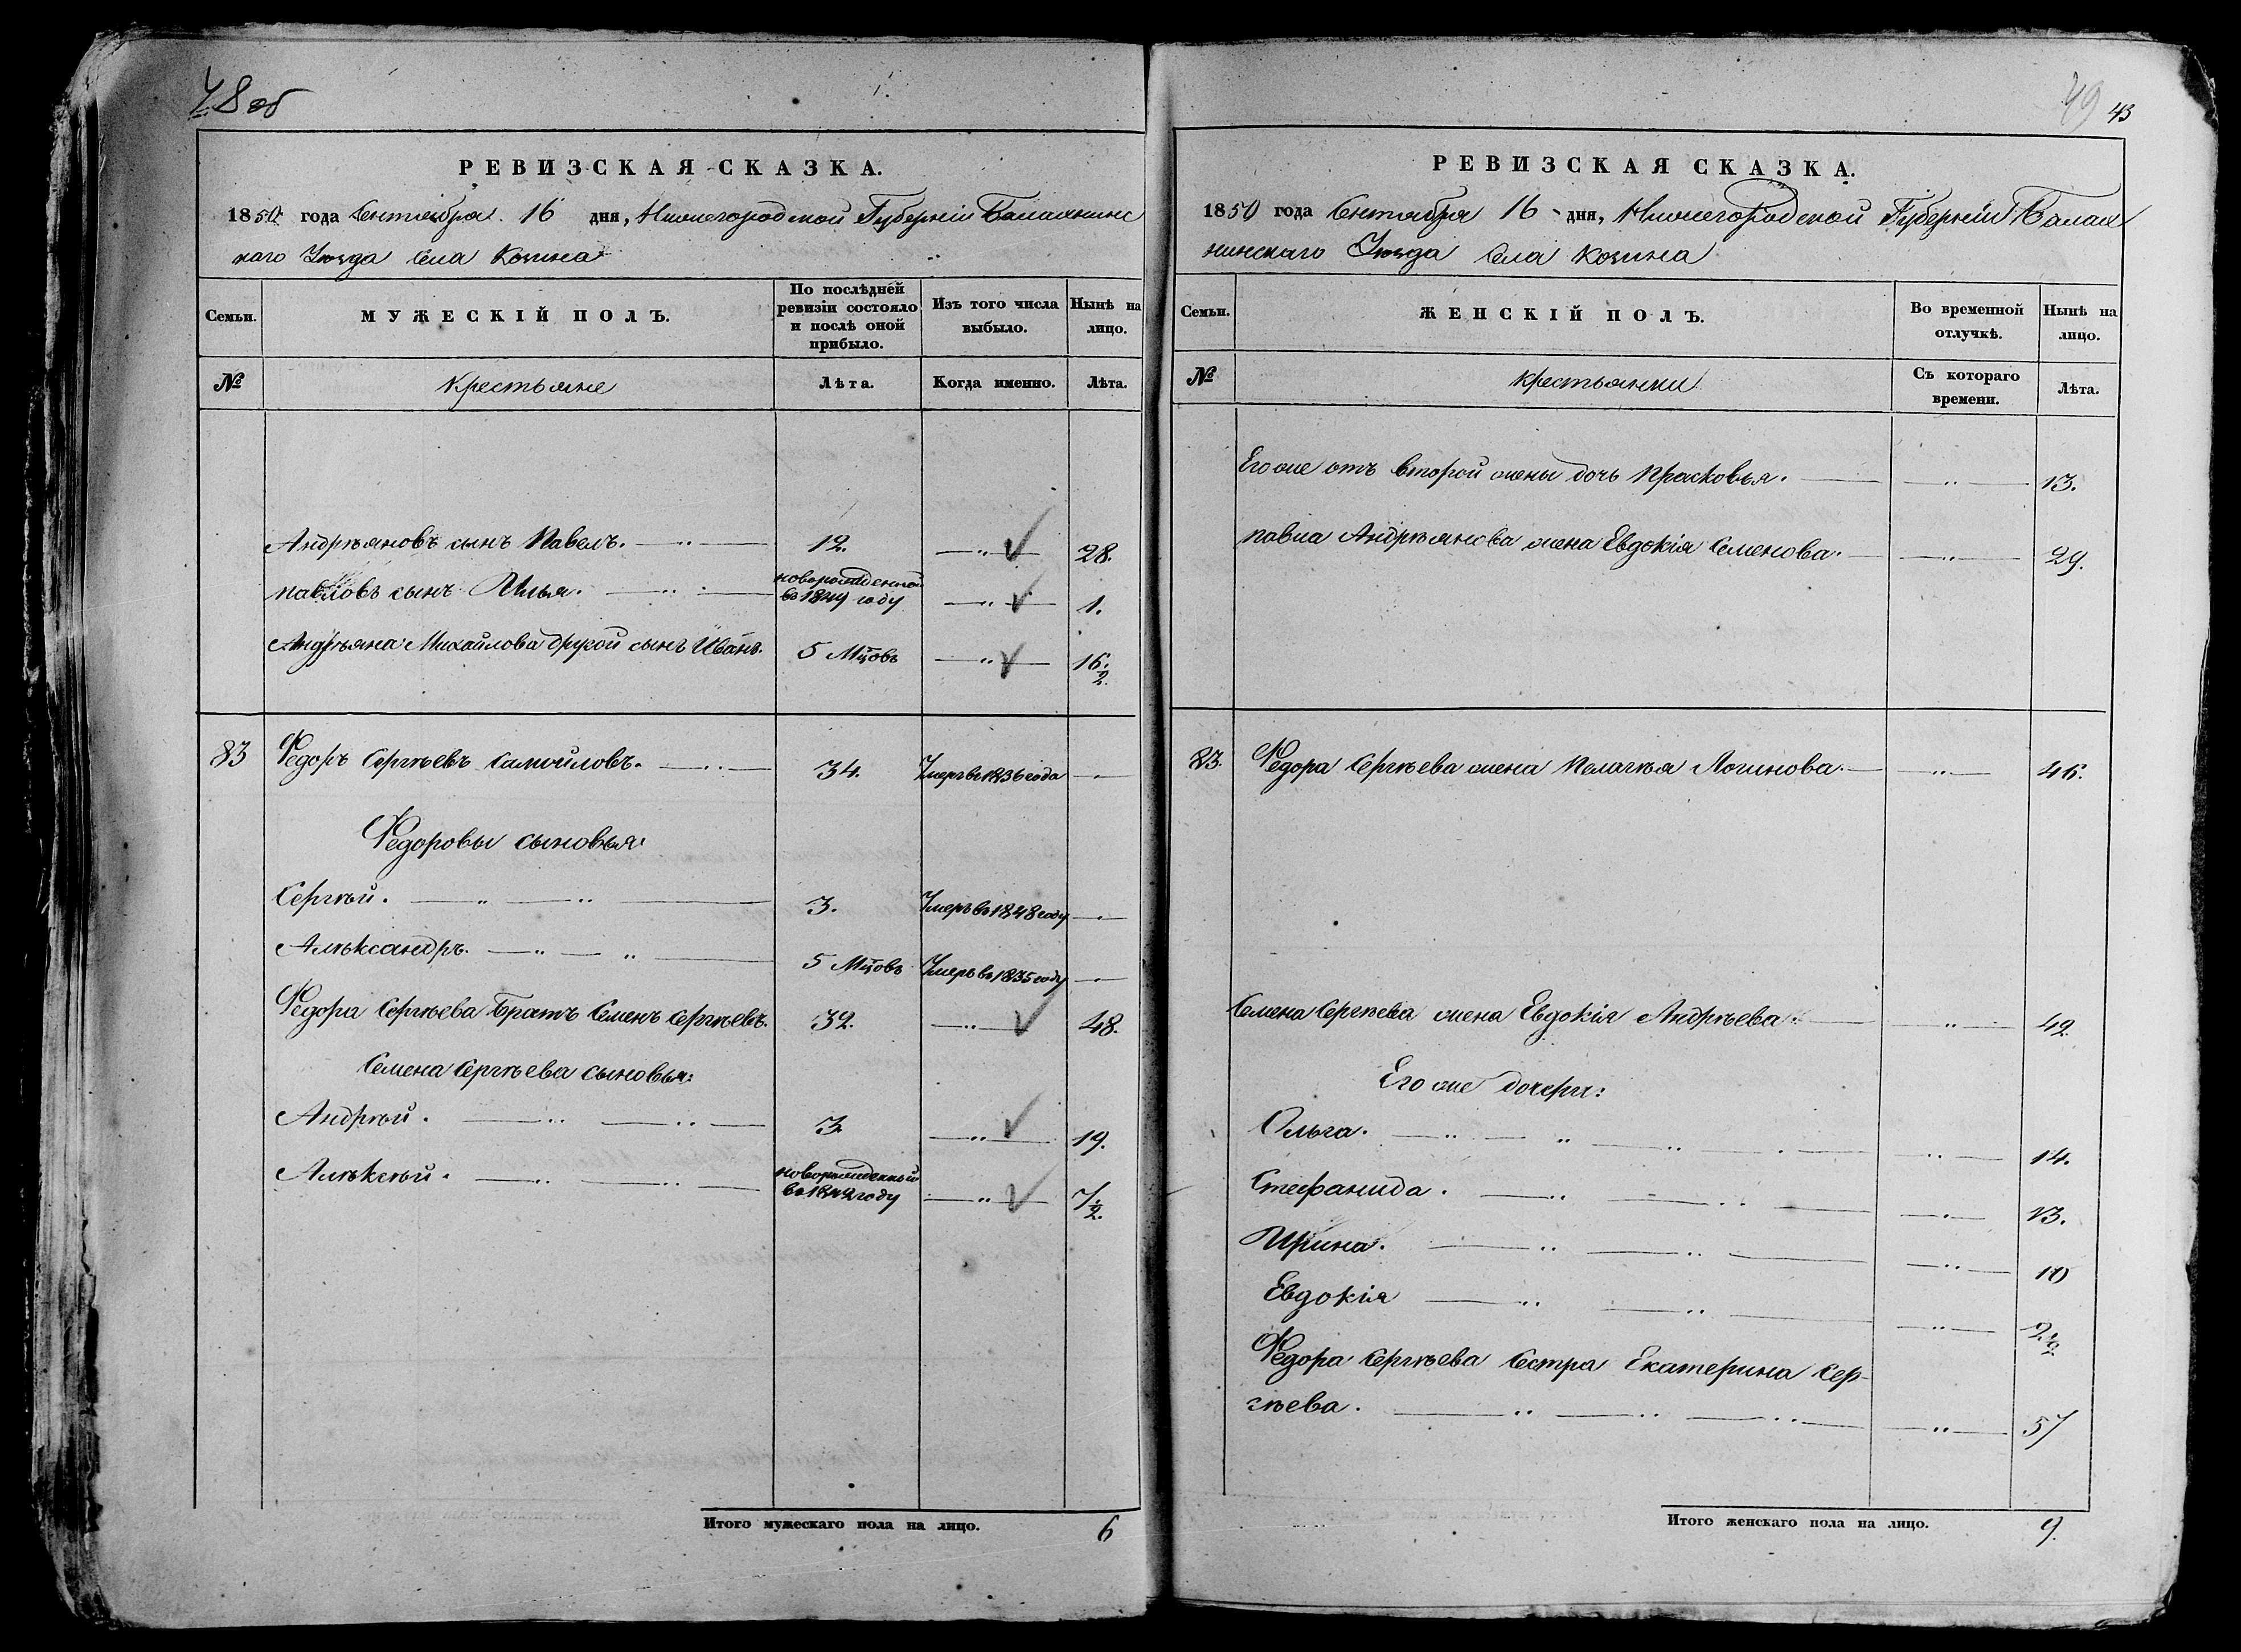 48 об
РЕВИЗСКАЯ СКАЗКА.
1850 года Сентября 16 дня, Нижегородской Губерніи Балахнинс
каго Уѣзда Села Козина
Семьи. МУЖЕСКІЙ ПОЛЪ. По послѣдней ревизіи состояло и послѣ оной прибыло. Изъ того числа выбыло. Нынѣ на лицо.
№ Крестьяне Лѣта. Когда именно. Лѣта.
Андрѣяновъ сынъ Павелъ. 12. 28.
павловъ сынъ Илья. новорожденной въ 1849 году 1.
Андрѣяна Михайлова другой сынъ Иванъ. 5 Мцовъ 16 1/2.
83 Ѳедоръ Сергѣевъ Самойловъ. 34. Умеръ въ 1836 года
Ѳедоровы сыновья:
Сергѣй. 3. Умеръ въ 1848 году
Алѣксандръ. 5 Мцовъ Умеръ въ 1835 году
Ѳедора Сергѣева Братъ Семенъ Сергѣевъ. 32. 48.
Семена Сергѣева сыновья:
Андрѣй. 3. 19.
Алѣксѣй. новорожденный въ 1842 году 7 1/2.
Итого мужескаго пола на лицо. 6
49 43
РЕВИЗСКАЯ СКАЗКА.
1850 года Сентября 16 дня, Нижегородской Губерніи Балах
нинскаго Уѣзда Села Козина
Семьи. ЖЕНСКІЙ ПОЛЪ. Во временной отлучкѣ. Нынѣ на лицо.
№ крестьянки Съ котораго времени. Лѣта.
Его же отъ второй жены дочь Прасковья. 13.
павла Андрѣянова жена Евдокія Семенова. 29.
83. Ѳедора Сергѣева жена Пелагѣя Логинова. 46.
Семена Сергѣева жена Евдокія Андрѣева. 42.
Его же дочери:
Ольга. 14.
Стефанида. 13.
Ирина. 10
Евдокія 2 1/2.
Ѳедора Сергѣева Сестра Екатерина Сер-
гѣева. 57
Итого женскаго пола на лицо. 9.